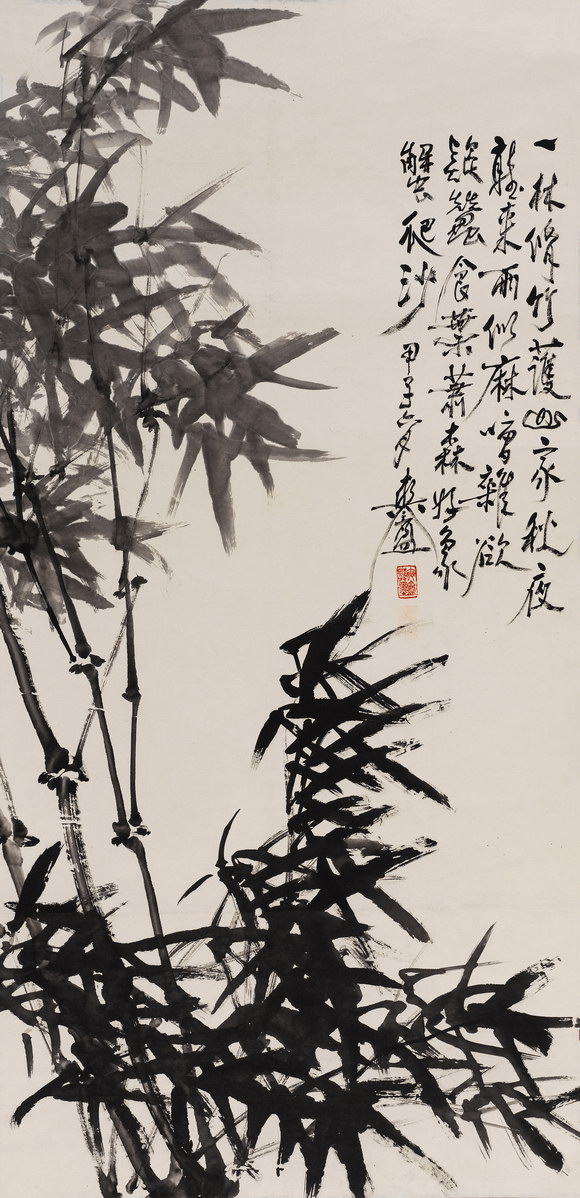 一林脩竹護山家秋夜
聽來雨似麻嘈雜欲
疑蠶食葉蕭森好象
蟹爬沙 甲子六月